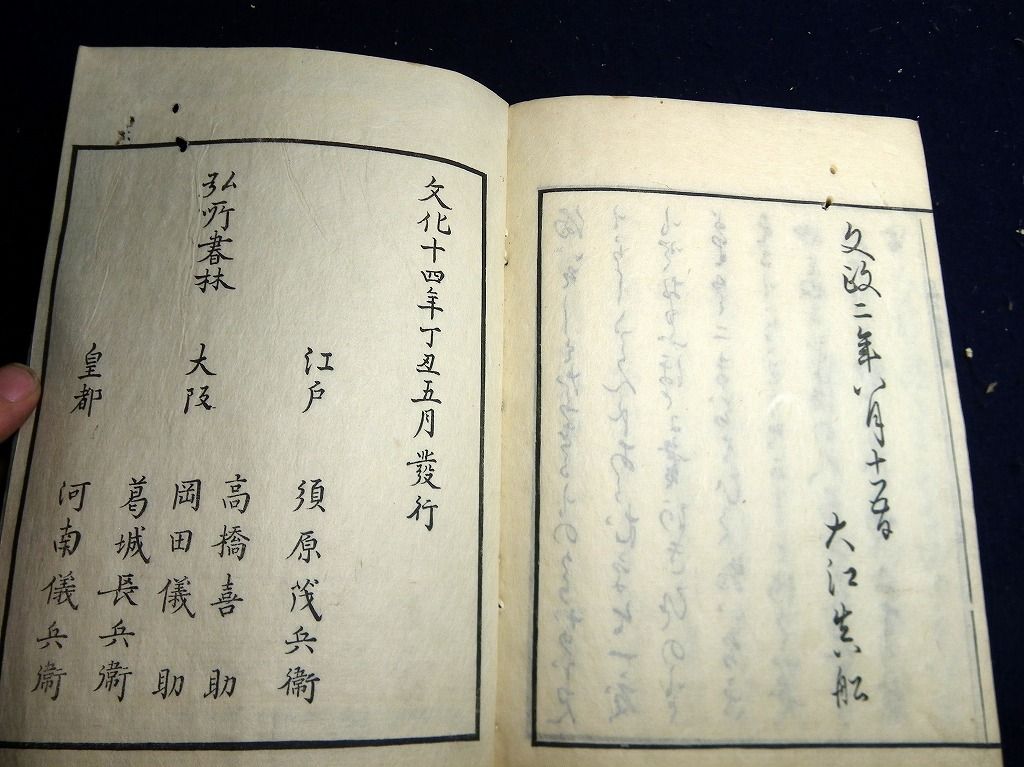 文政二年八月十五日
大江真船
文化十四年丁丑五月發行
江戸 須原茂兵衛
大阪 高橋喜助
岡田儀助
弘所書林
葛城長兵衛
皇都 河南儀兵衛